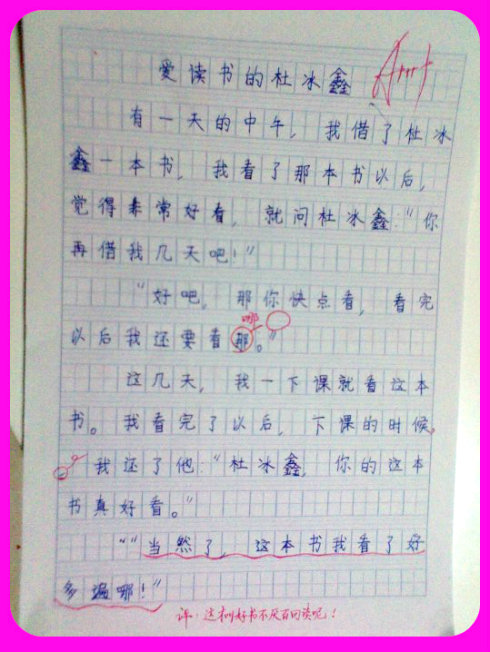 爱读书的杜冰鑫
有一天的中午，我借了杜冰
鑫一本书，我看了那本书以后，
觉得非常好看，就问杜冰鑫：“你
再借我几天吧！”
“好吧，那你快点看，看完
哪
以后我还要看那。”
这几天，我一下课就看这本
书。我看完了以后，下课的时候。
我还了他：“杜冰鑫，你的这本
书真好看。”
“当然了，这本书我看了好
多遍哪！”
评：这叫好书不厌百回读呢！